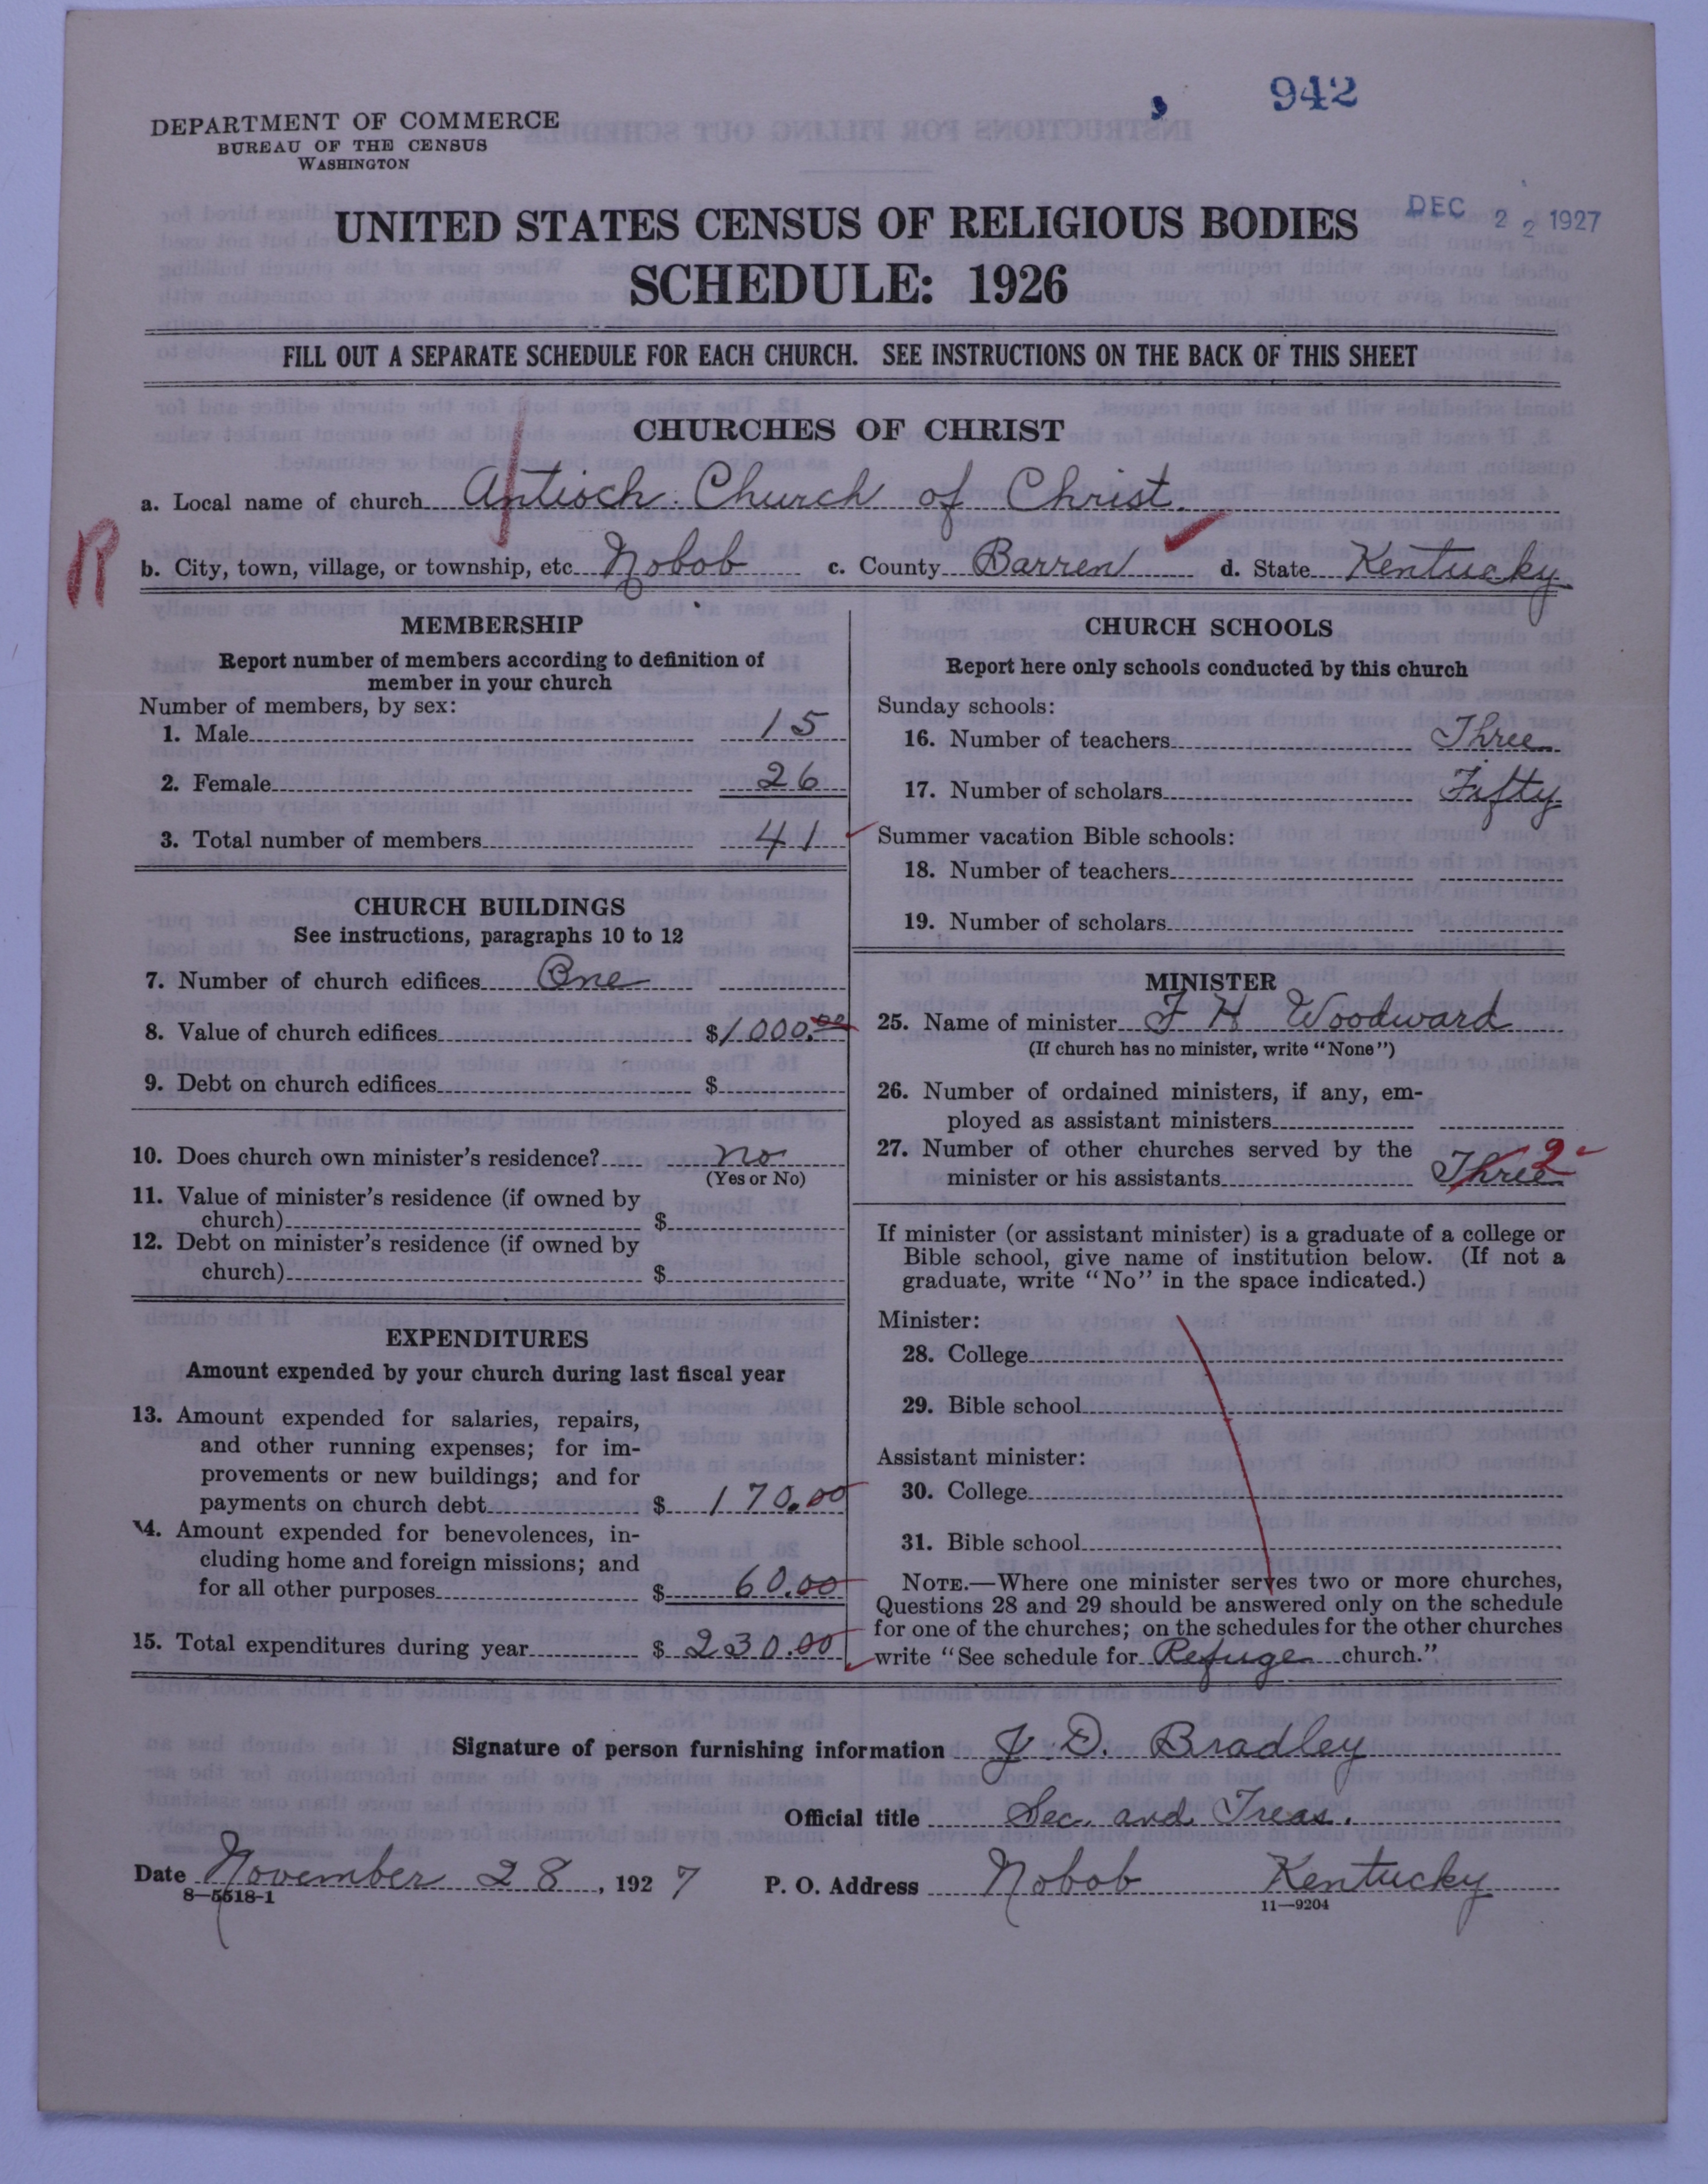 942
DEPARTMENT OF COMMERCE
BUREAU OF THE CENSUS
WASHINGTON
DEC 22 1927
UNITED STATES CENSUS OF RELIGIOUS BODIES
SCHEDULE: 1926
FILL OUT A SEPARATE SCHEDULE FOR EACH CHURCH. SEE INSTRUCTIONS ON THE BACK OF THIS SHEET
CHURCHES OF CHRIST
a. Local name of church Antioch Church of Christ.
R
b. City, town, village, or township, etc. Nobob c. County Barren d. State Kentucky
MEMBERSHIP
Report number of members according to definition of
member in your church
Number of members, by sex:
1. Male 15
2. Female 26
3. Total number of members 41
CHURCH BUILDINGS
See instructions, paragraphs 10 to 12
7. Number of church edifices One
8. Value of church edifices $1000.00
9. Debt on church edifices $
10. Does church own minister's residence? no
(Yes or No)
11. Value of minister's residence (if owned by
church) $
12. Debt on minister's residence (if owned by
church) $
EXPENDITURES
Amount expended by your church during last fiscal year
13. Amount expended for salaries, repairs,
and other running expenses; for im-
provements or new buildings; and for
payments on church debt $ 170.00
14. Amount expended for benevolences, in-
cluding home and foreign missions; and
for all other purposes $ 60.00
15. Total expenditures during year $ 230.00
CHURCH SCHOOLS
Report here only schools conducted by this church
Sunday schools:
16. Number of teachers Three
17. Number of scholars Fifty
Summer vacation Bible schools:
18. Number of teachers
19. Number of scholars
MINISTER
25. Name of minister F H Woodward
(If church has no minister, write "None")
26. Number of ordained ministers, if any, em-
ployed as assistant ministers
27. Number of other churches served by the
minister or his assistants Three 2
If minister (or assistant minister) is a graduate of a college or
Bible school, give name of institution below. (If not a
graduate, write "No" in the space indicated.)
Minister:
28. College
29. Bible school
Assistant minister:
30. College
31. Bible school
NOTE.—Where one minister serves two or more churches,
Questions 28 and 29 should be answered only on the schedule
for one of the churches; on the schedules for the other churches
write "See schedule for Refuge church."
Signature of person furnishing information J. D. Bradley
Official title Sec. and Treas.
Date November 28, 1927 P. O. Address Nobob Kentucky
8—5518-1
11—9204